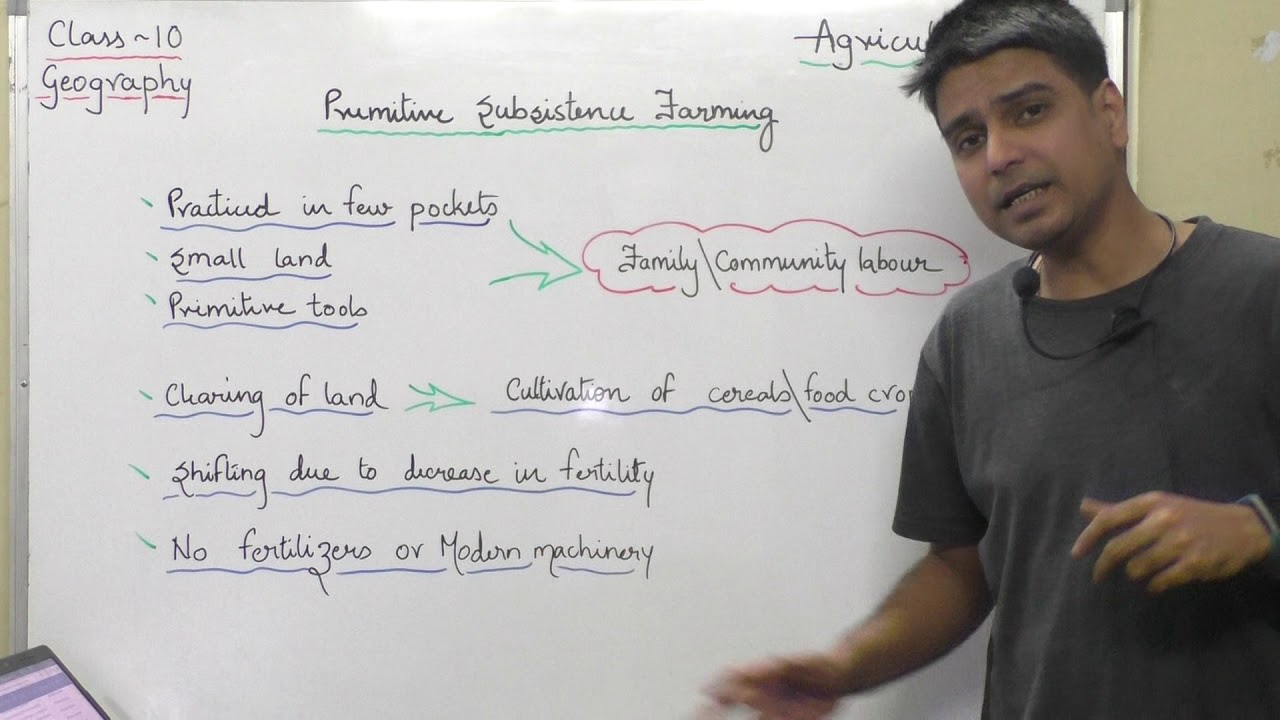 Class~10
Geography
Agricul
Primitive Subsistence Farming
Practiced in few pockets
Small land
Primitive tools
Family\Community labour
Clearing of land
Cultivation of cereals\food crop
Shifting due to decrease in fertility
No fertilizers or Modern machinery